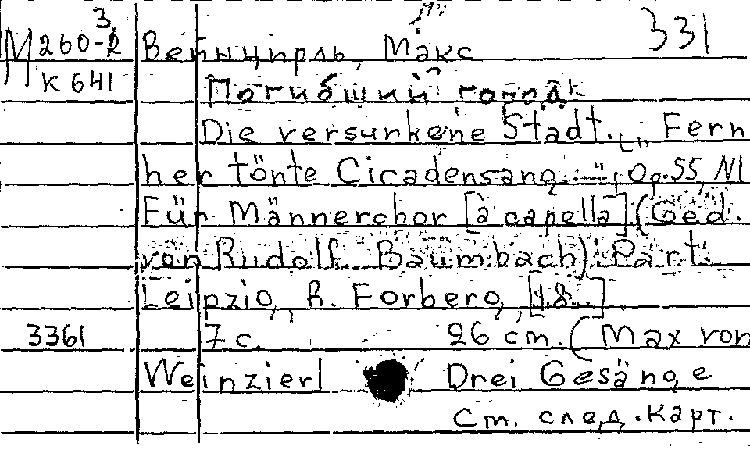 М 260-2 3 Вейнцирль, Макс 331
К 641 Погибший город
Die versunkene Stadt. „Fern
her tönte Cicadensang ...", Op.55, N1
Für Männerchor [à capella] (Ged.
von Rudolf Baumbach) Part.
Leipzig, R. Forberg, [18..]
3361 7 с. 26 cm. (Max von
Weinzierl Drei Gesänge
См. след. карт.